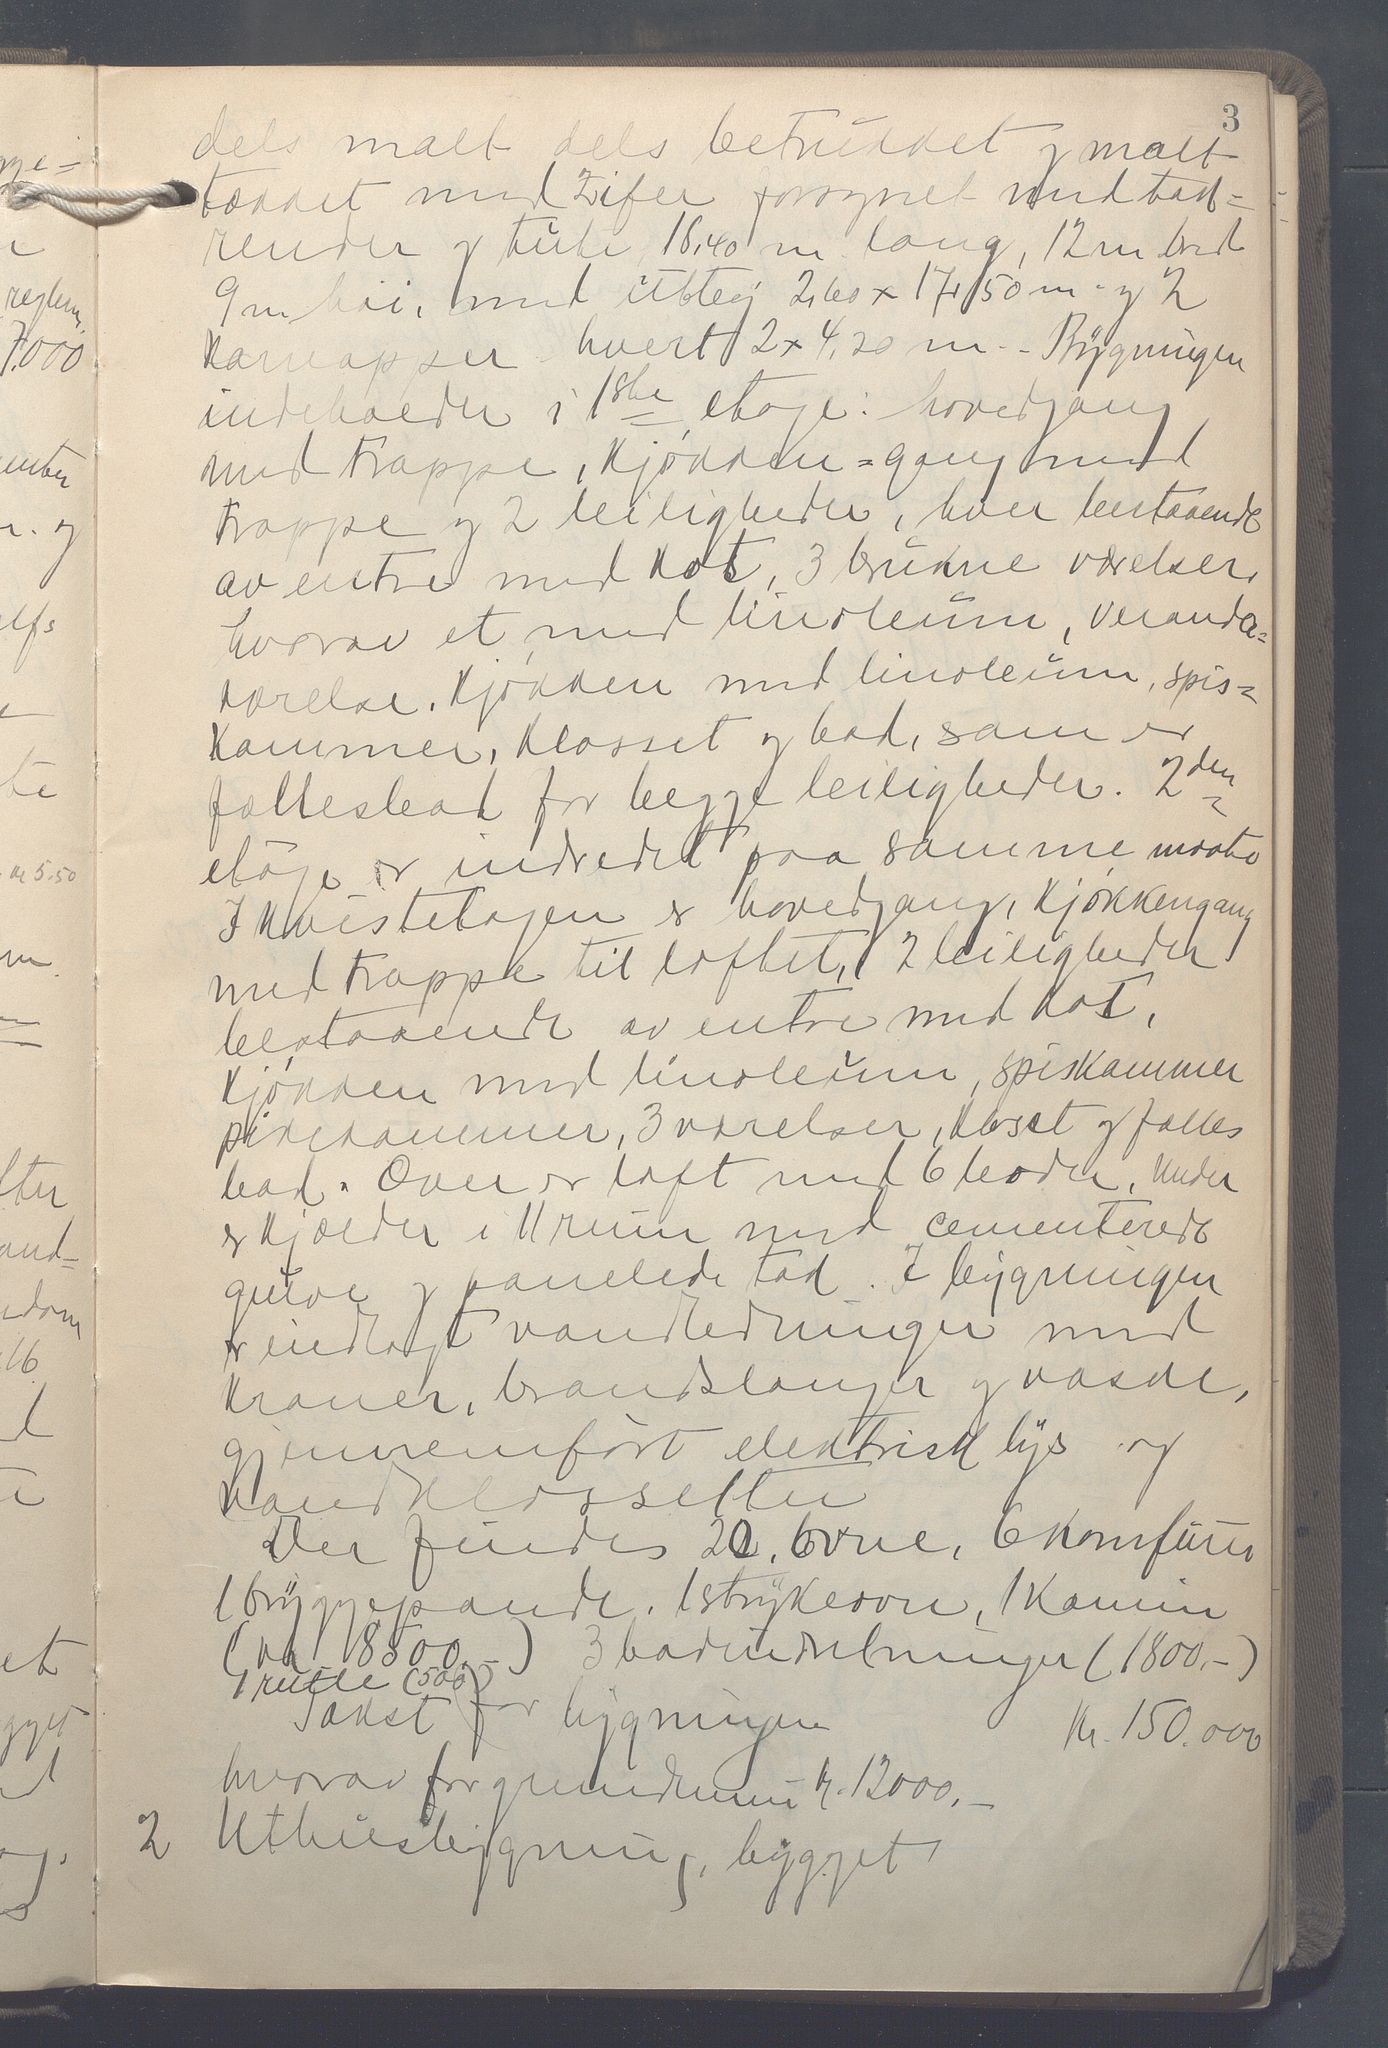 3
dels malt dels betrukket og malt
tækket med Eifer forsynet med tak=
render og tute 16,40 m lang, 12 m bred
9 m høi, med utbyg 2,60 x 17,50 m og 2
Karnapper hvert 2 x 4,20 m. - Bygningen
indeholder i 1ste etage: hovedgang
med trappe, Kjøkken=gang med
trappe og 2 leiligheder, hver bestaaende
av entre med kot, 3 brukne værelser
hvorav et med linoleum, veranda=
værelse, Kjøkken med linoleum, spis=
Kammer, Klosset og bad, som er
fællesbad for begge leiligheder. 2den
etage er indredet paa samme maate
I Kvistetagen er hovedgang, Kjøkkengang
med trappe til loftet, 2 leiligheder
bestaaende av entre med kot,
Kjøkken med linoleum, spiskammer
pikekammer, 3 værelser, Kloset og fælles
bad. Over er loft med 6 boder, Under
er Kjælder i 11 rum med cementerede
gulve og panelede tak. I bygningen
er indlagt vandledninger med
Kraner, brandslanger og vaske,
gjennemført elektrisk lys og
vandklossetter
Der findes 20 ovne, 6 Komfurer
1 bryggepande, 1 strykeovn, 1 Kamin
(Kr 18500.-) 3 badeindretninger (1800.-)
1 rulle (500)
Takst for bygningen Kr. 150.000
hvorav for grundmur Kr. 12000.-
2 Uthusbygning, bygget